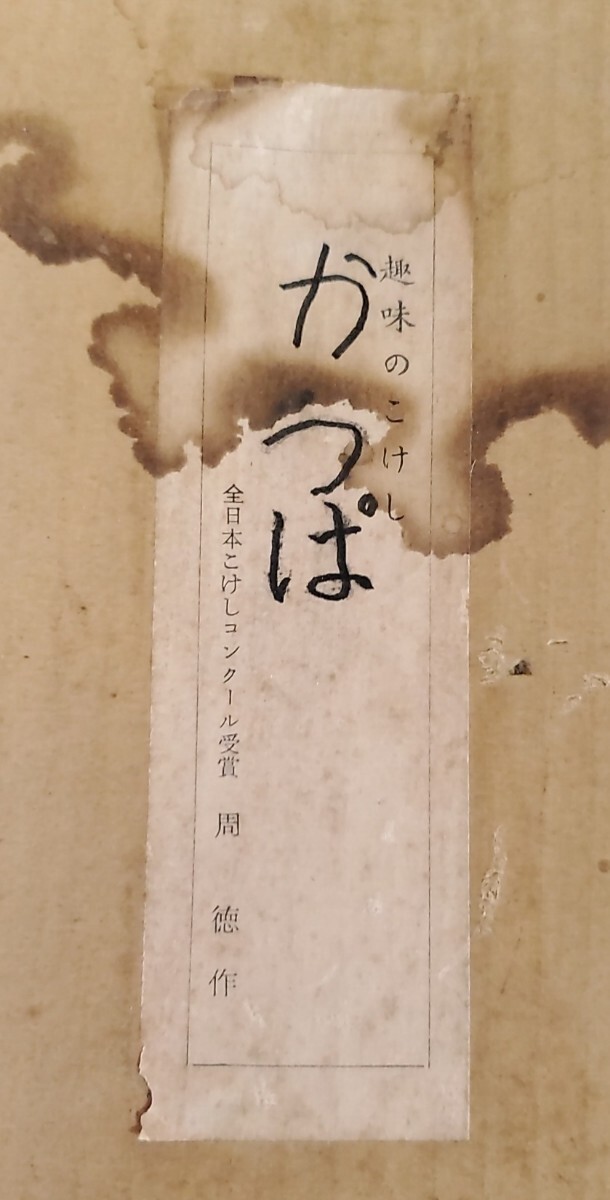 趣味のこけし
かっぱ
全日本こけしコンクール受賞 周徳作